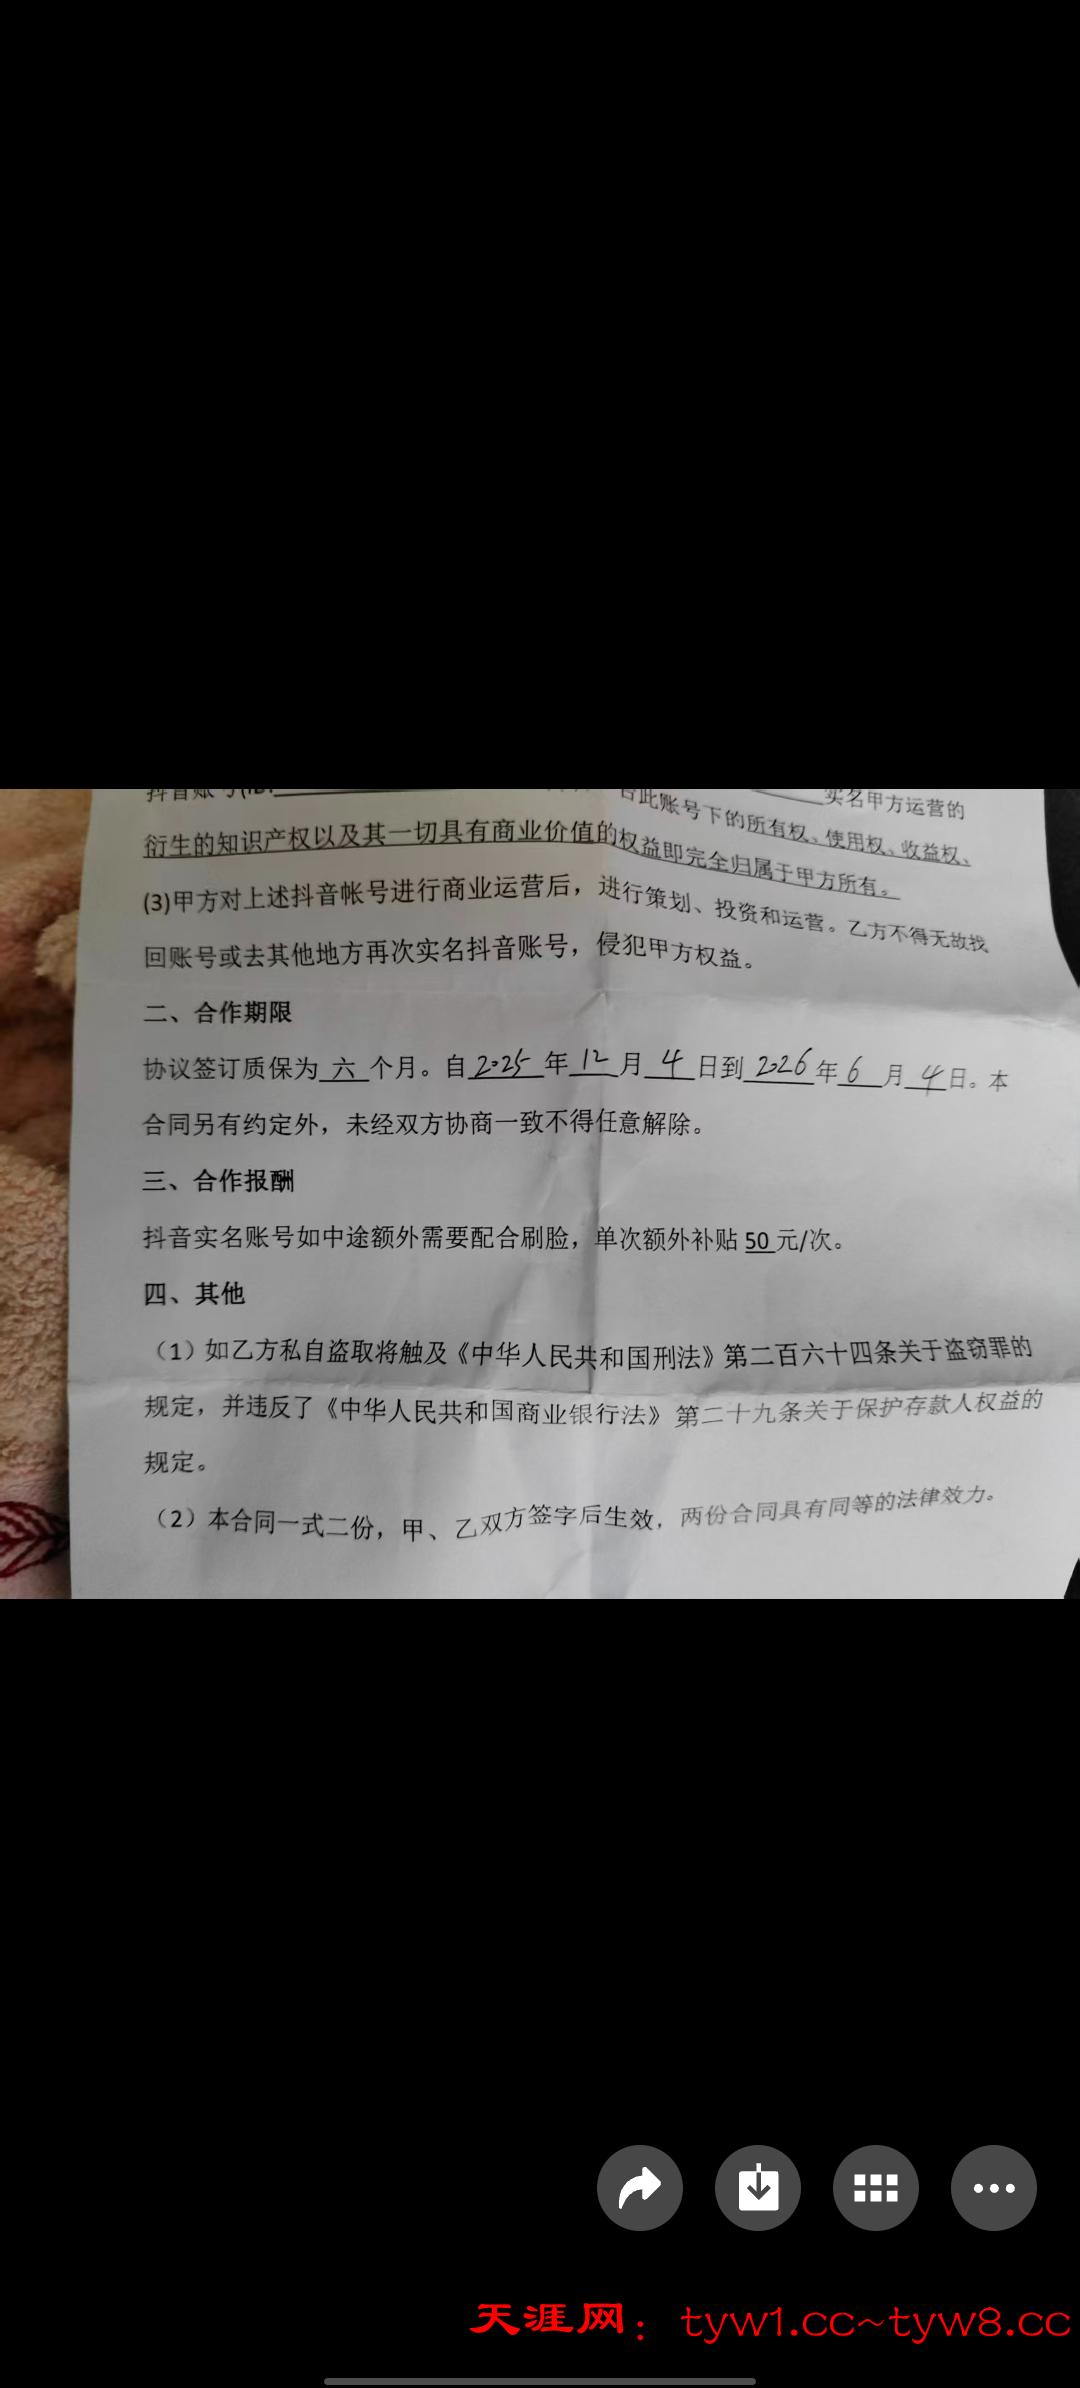 抖音账号(ID:
实名甲方运营的
台此账号下的所有权、使用权、收益权、
衍生的知识产权以及其一切具有商业价值的权益即完全归属于甲方所有。
(3)甲方对上述抖音帐号进行商业运营后，进行策划、投资和运营。乙方不得无故找
回账号或去其他地方再次实名抖音账号，侵犯甲方权益。
二、合作期限
协议签订质保为 六 个月。自 2025 年 12 月 4 日到 2026 年 6 月 4 日。本
合同另有约定外，未经双方协商一致不得任意解除。
三、合作报酬
抖音实名账号如中途额外需要配合刷脸，单次额外补贴 50 元/次。
四、其他
（1）如乙方私自盗取将触及《中华人民共和国刑法》第二百六十四条关于盗窃罪的
规定，并违反了《中华人民共和国商业银行法》第二十九条关于保护存款人权益的
规定。
（2）本合同一式二份，甲、乙双方签字后生效，两份合同具有同等的法律效力。
天涯网：tyw1.cc~tyw8.cc